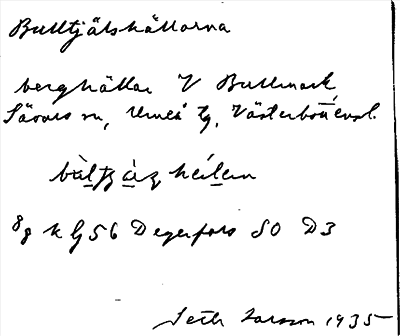 Bulltjälshällarna
berghällar V Bullmark,
Sävars sn, Umeå tg, Västerbottensl.
8g k bl 56 Degerfors SO D3
Seth Larsson 1935